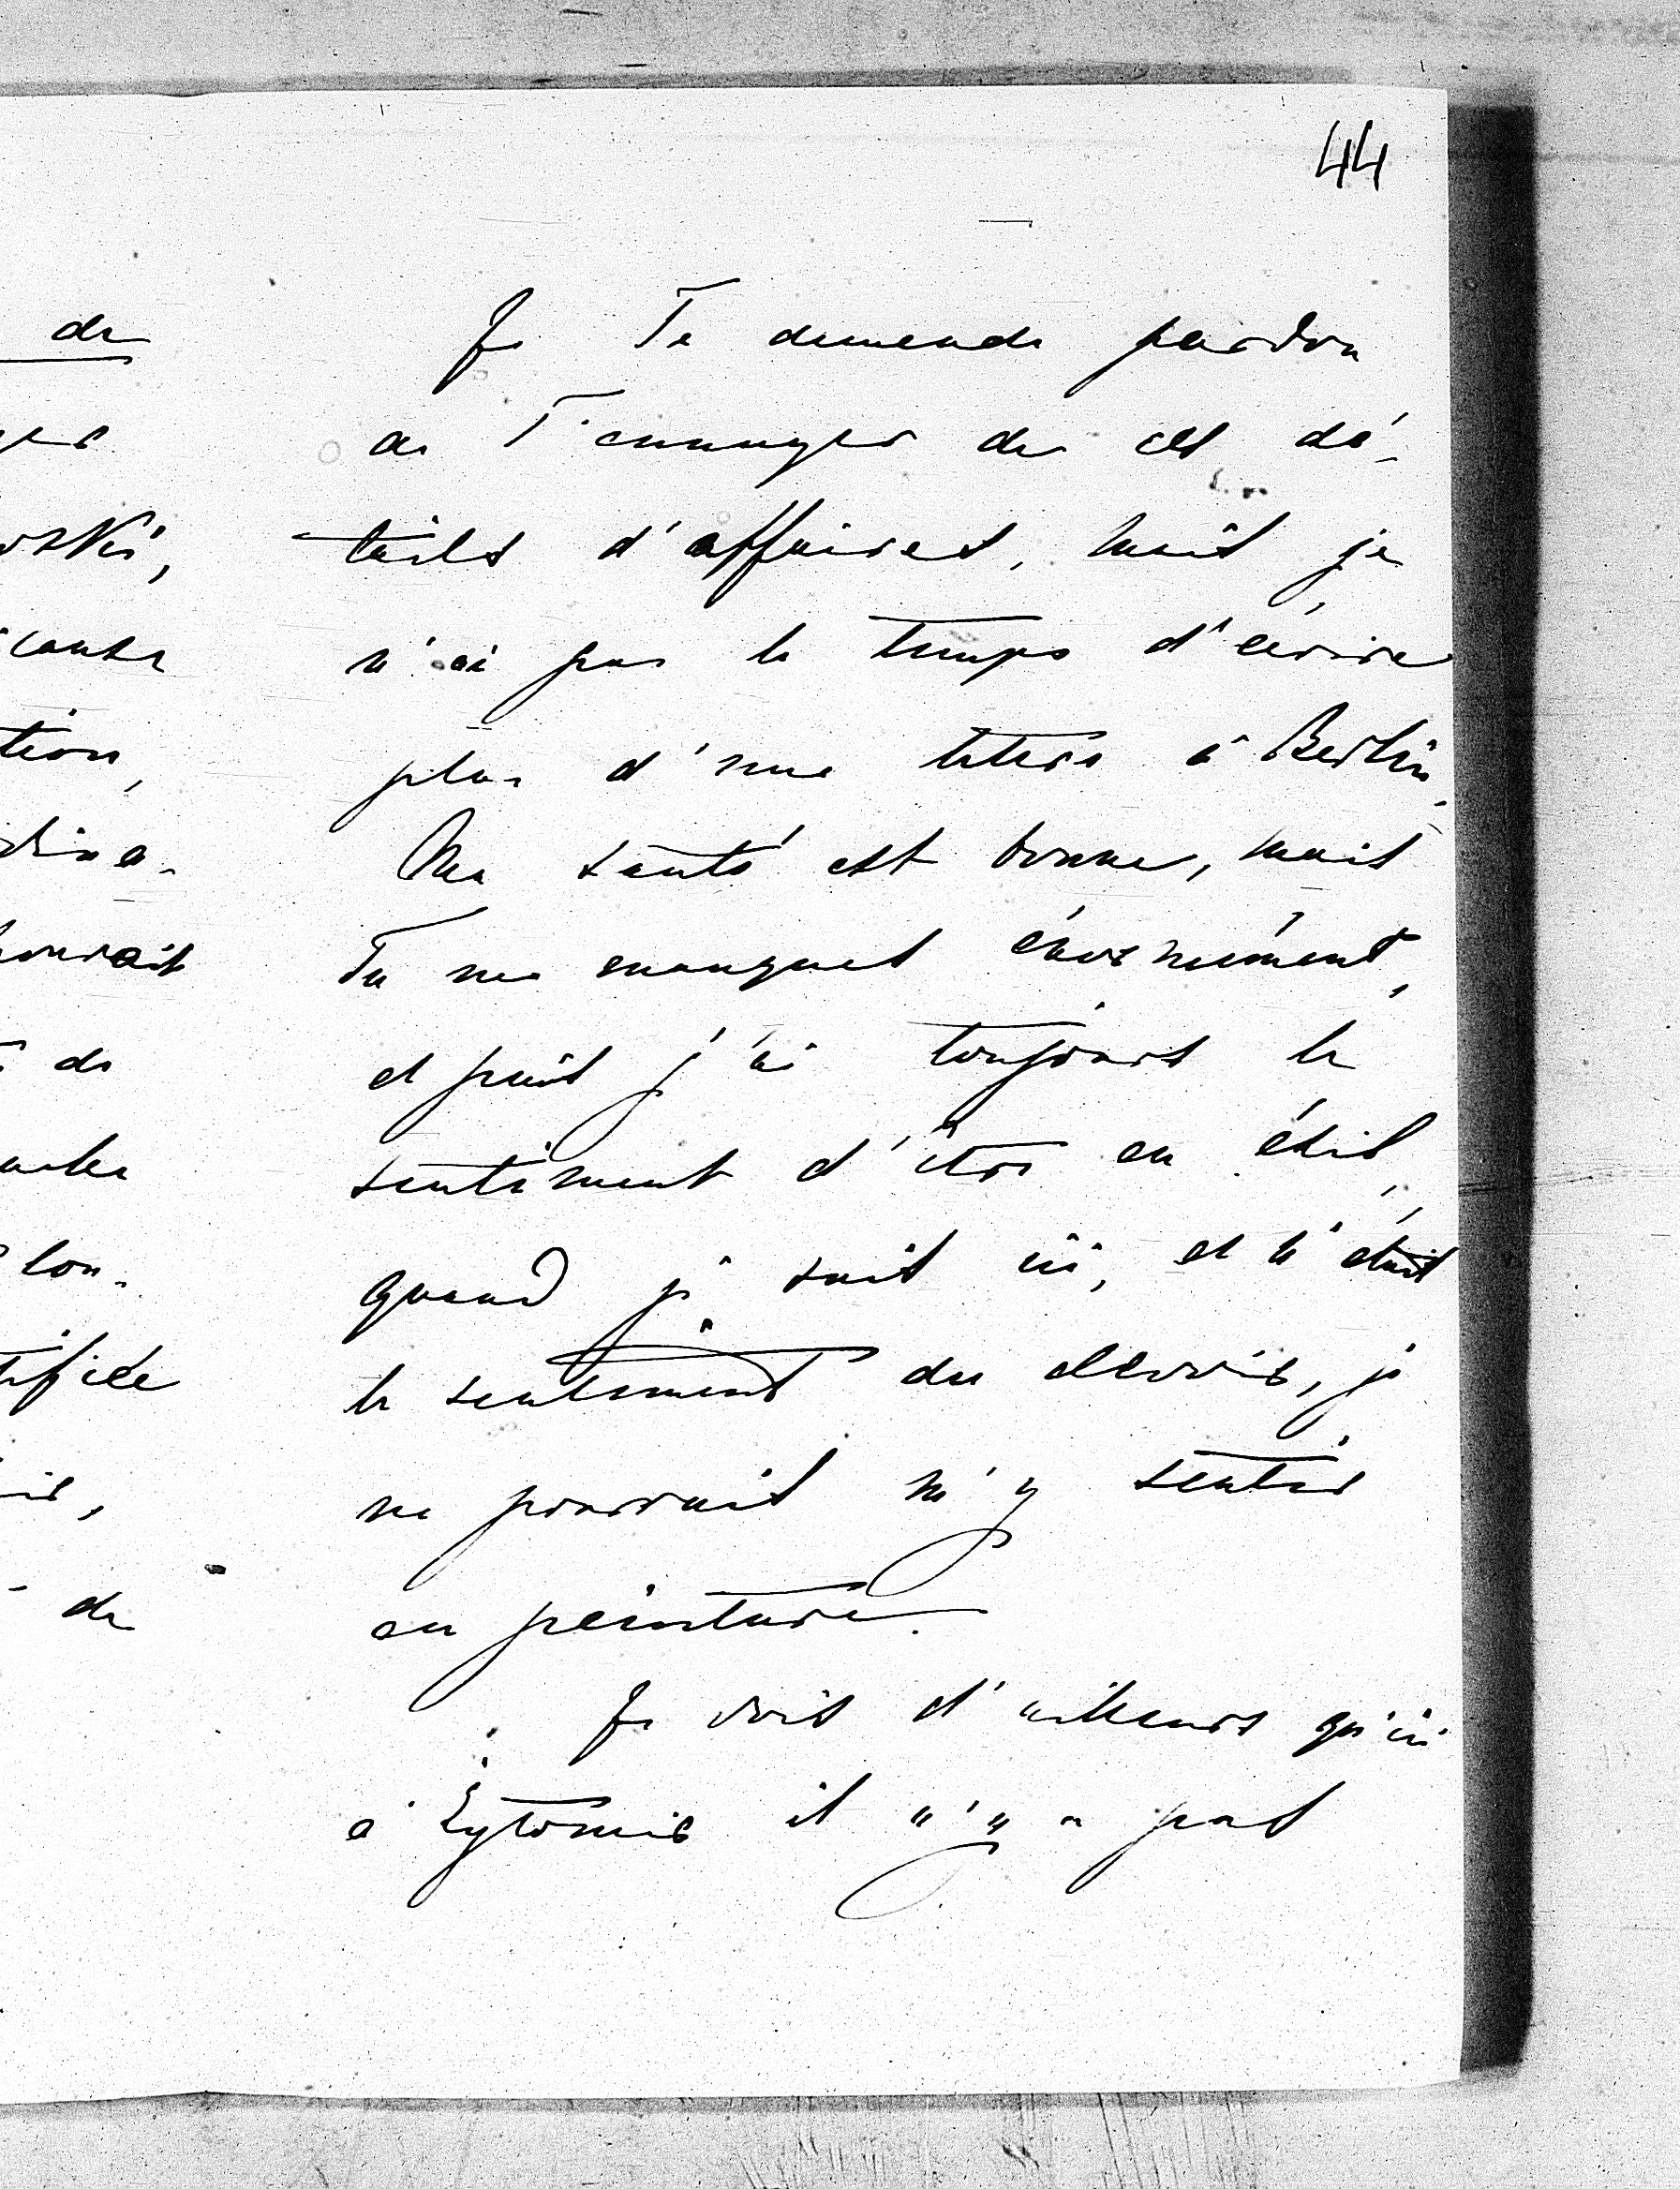 44
Je Te demande pardon
de T'ennuyer de ces dé-
tails d'affaires, mais je
n'ai pas le temps d'écrire
plus d'une lettre à Berlin.
Ma santé est bonne, mais
Tu me manques énormément,
et puis j'ai toujours le
sentiment d'être en éxil,
quand je suis ici, et n'était
le sentiment du devoir, je
ne pourrais m'y sentir
en peinture.
Je vois d'ailleurs qu'ici
à Żytomir il n'y a pas
de
tion,
de
lon-
de